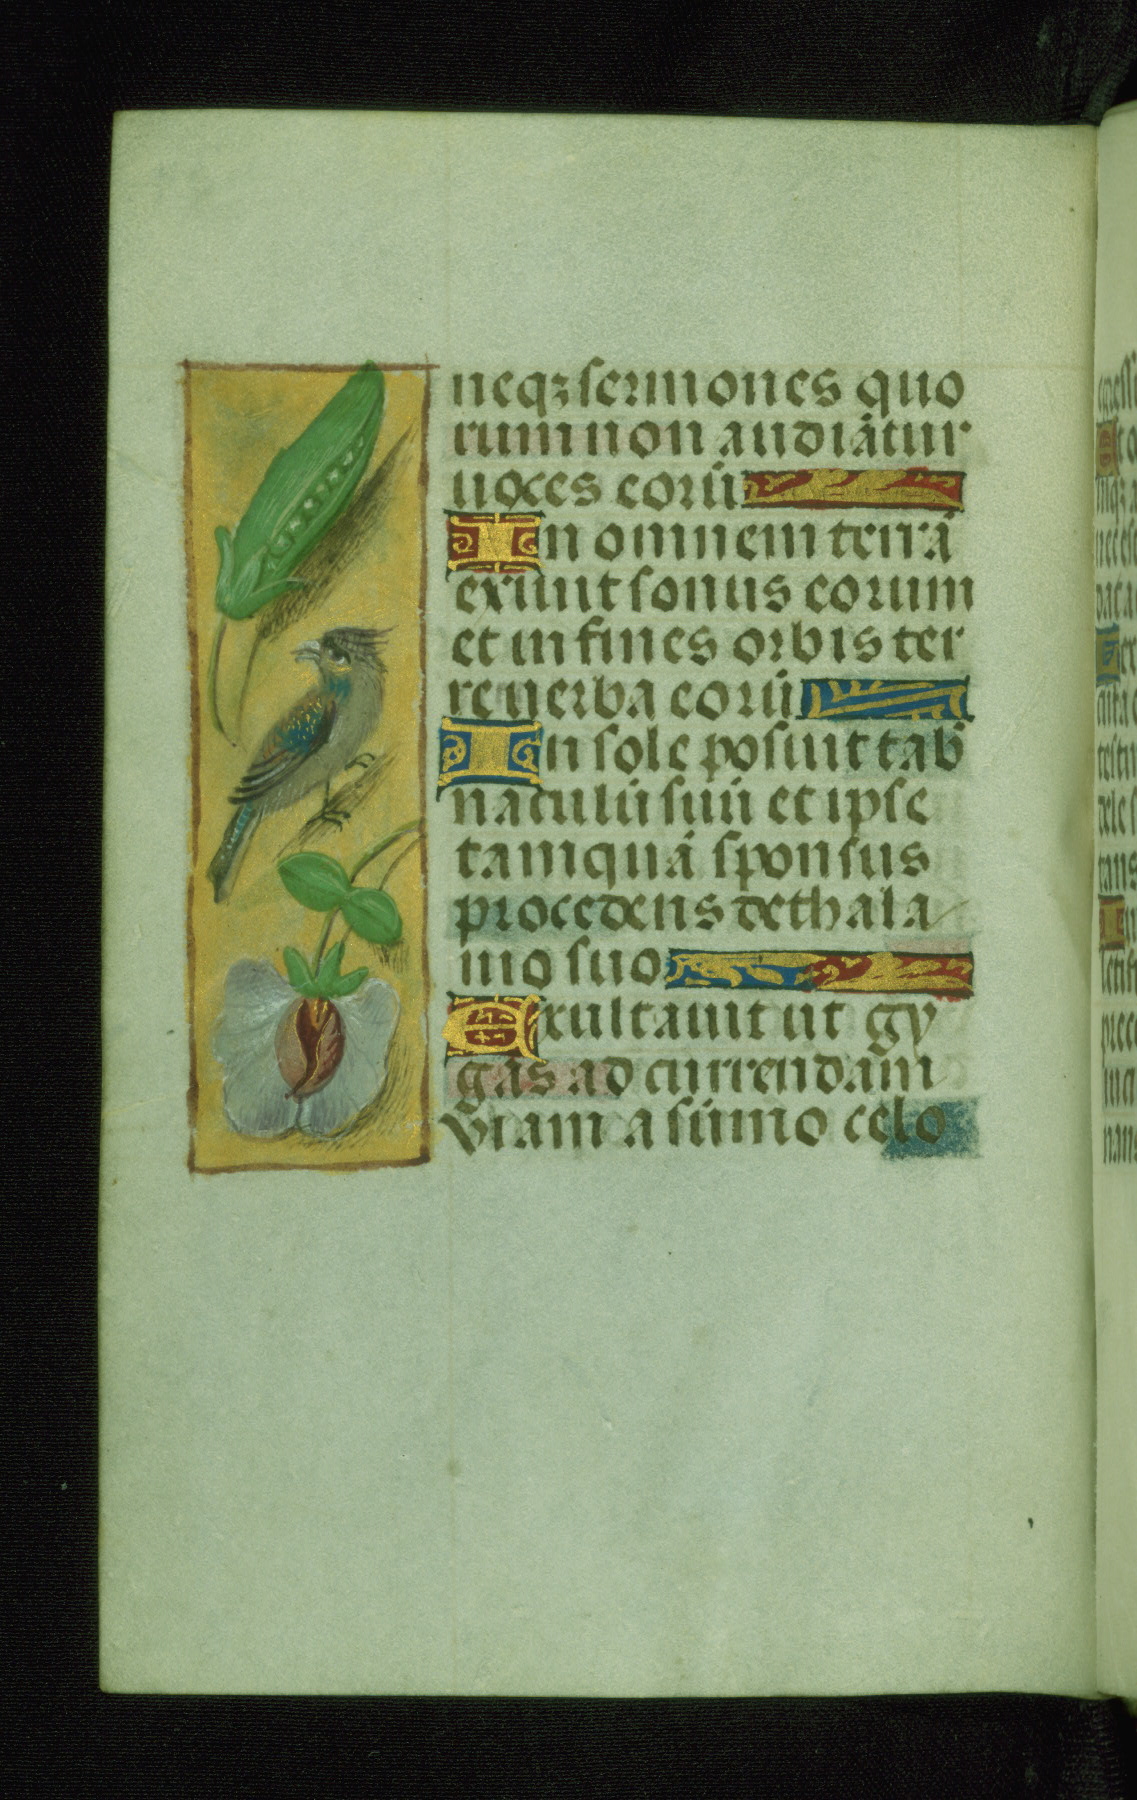 neqꝫ sermones quo
rum non audiātur
uoces eorū
In omnem terrā
exiuit sonus eorum
et in fines orbis ter
re uerba eorū
In sole posuit tab̄
naculū suū et ipse
tamquā sponsus
procedens de thala
mo suo
Exultauit ut gy
gas ad currendam
viam a sūmo celo